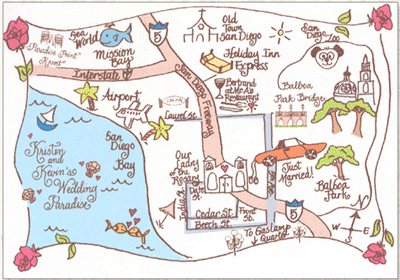 Sea
World
Mission
Bay
Paradise Point
Resort
Interstate
8
5
Old
Town
San Diego
San
Diego
Zoo
Holiday Inn
Express
San Diego Freeway
Bertrand
at Mr. A's
Restaurant
Balboa
Park Bridge
Airport
Laurel St.
San
Diego
Bay
Kristin
and
Kevin's
Wedding
Paradise
Our
Lady
of the
Rosary
Just
Married!
Balboa
Park
India St.
Date
St.
Cedar St.
Front
St.
Beech St.
5
To Gaslamp
Quarter
N
S